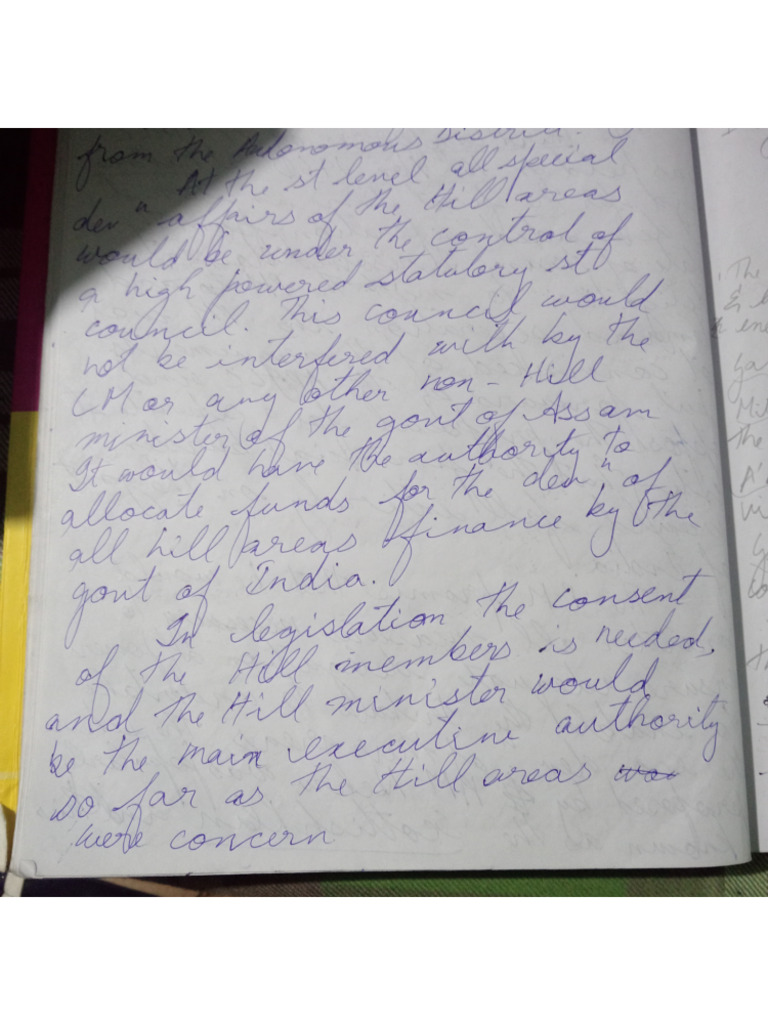 from the Autonomous District.
At the st level all special
devⁿ affairs of the Hill areas
would be under the control of
a high powered statutory st
council. This council would
not be interfered with by the
CM or any other non-Hill
minister of the govt of Assam
It would have the authority to
allocate funds for the devⁿ of
all hill areas finance by the
govt of India.
In legislation the consent
of the Hill members is needed,
and the Hill minister would
be the main executive authority
so far as the Hill areas
were concern
The
&
the